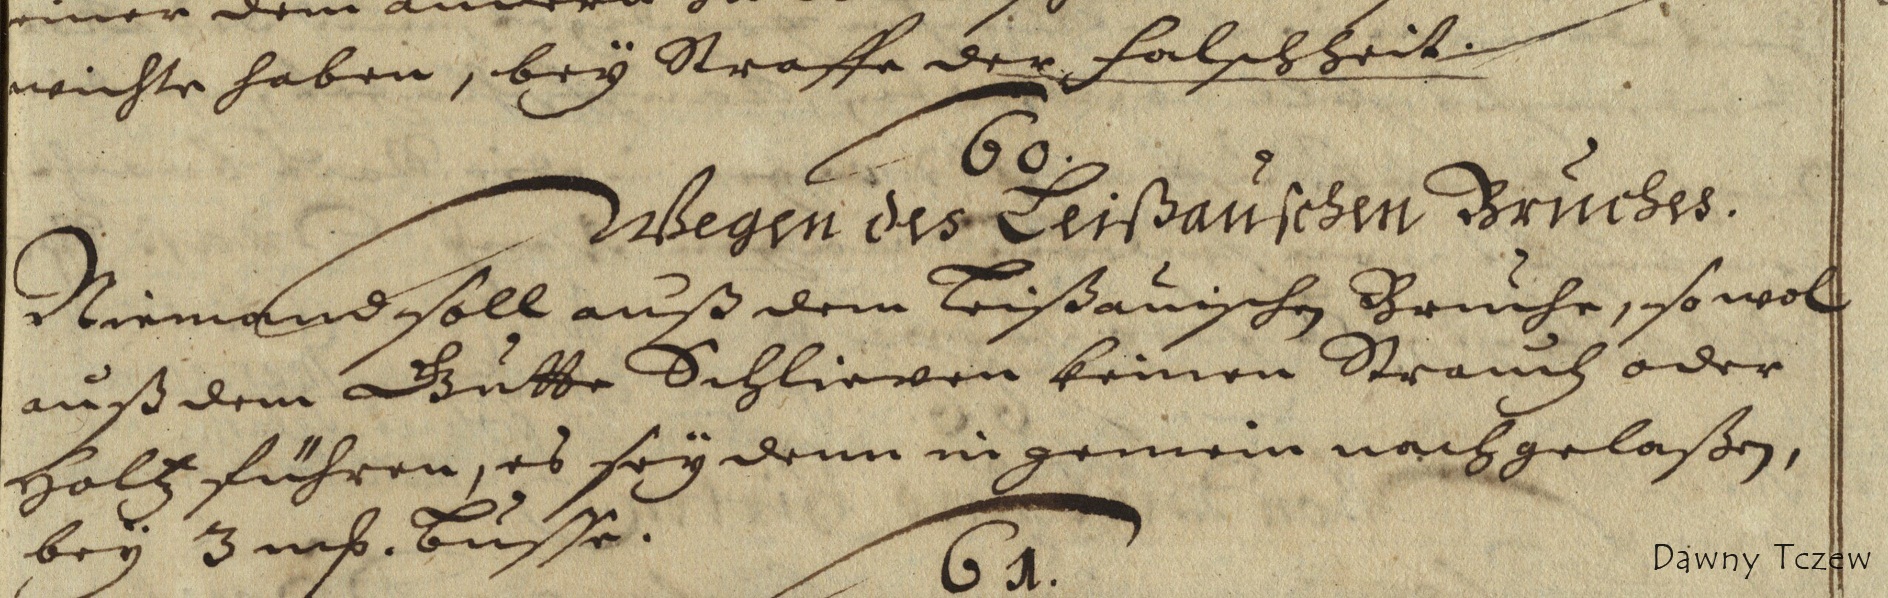 einer dem andern
wichte haben, bey Straffe der falschheit.
60.
Wegen des Leißauschen Bruches.
Niemand soll auß dem Leißauischen Bruche, so wol
auß dem Gutte Schlieven keinen Strauch oder
Holtz führen, es seÿ denn in gemein nachgelaßen,
beÿ 3 mk. Busse.
61.
Dawny Tczew